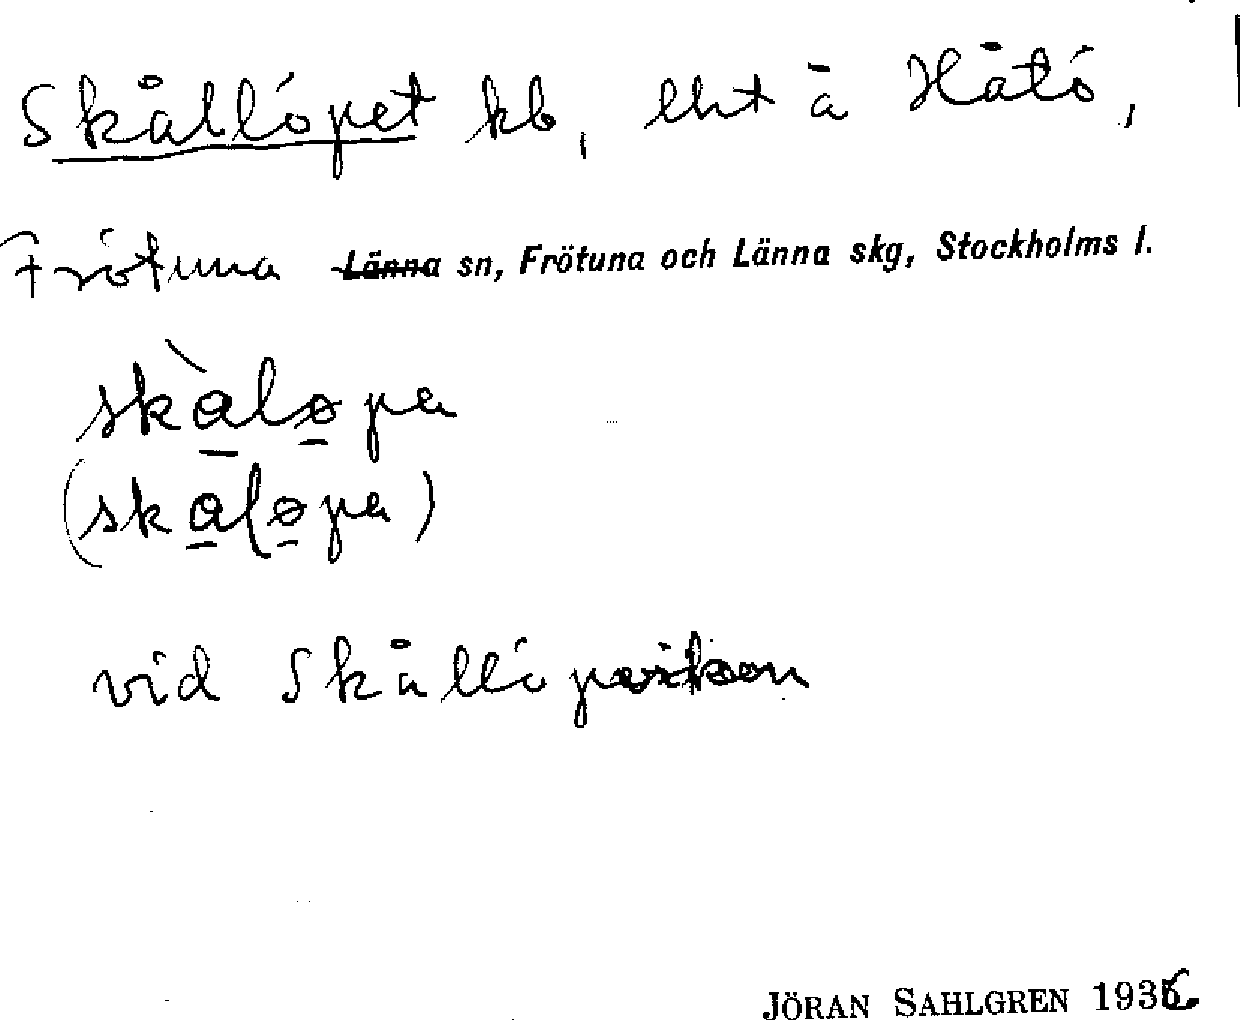 Skållöpet kb, lht å Håtö,
Frötuna Länna sn, Frötuna och Länna skg, Stockholms l.
skàløpa
(skaløpa)
vid Skållöpviken
JÖRAN SAHLGREN 1936